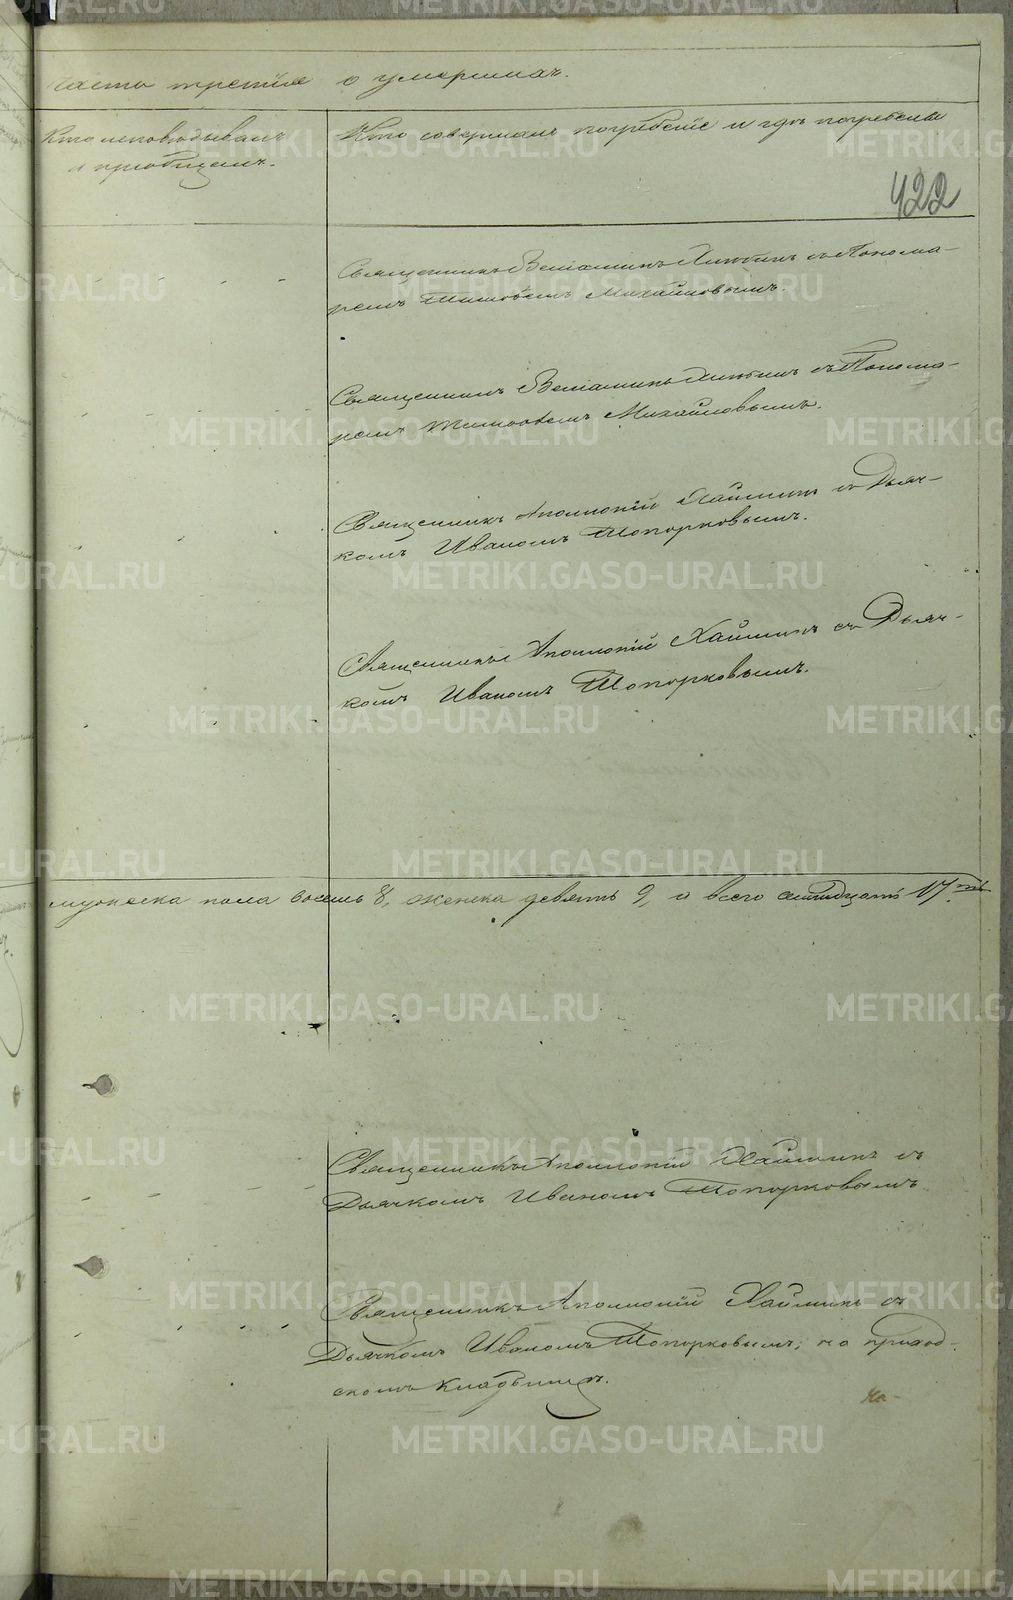 часть третія о умершихъ.
Кто исповѣдывалъ
и пріобщалъ.
Кто совершалъ погребеніе и гдѣ погребены
422
Священникъ Веніаминъ с Понома-
ремъ Тимофеемъ Михайловымъ.
Священникъ Веніаминъ съ Понома-
ремъ Тимофеемъ Михайловымъ.
Священникъ Аполлоній Хаймин съ Дьяч-
комъ Иваномъ Топорковымъ.
Священникъ Аполлоній Хайминъ съ Дьяч-
комъ Иваномъ Топорковымъ.
мужеска пола восемь 8, женска девять 9, а всего семнадцать 17
Священникъ Аполлоній Хайминъ съ
Дьячкомъ Иваномъ Топорковымъ
Священникъ Аполлоній Хайминъ съ
Дьячкомъ Иваномъ Топорковымъ, на приход-
скомъ кладбищѣ.
METRIKI.GASO-URAL.RU